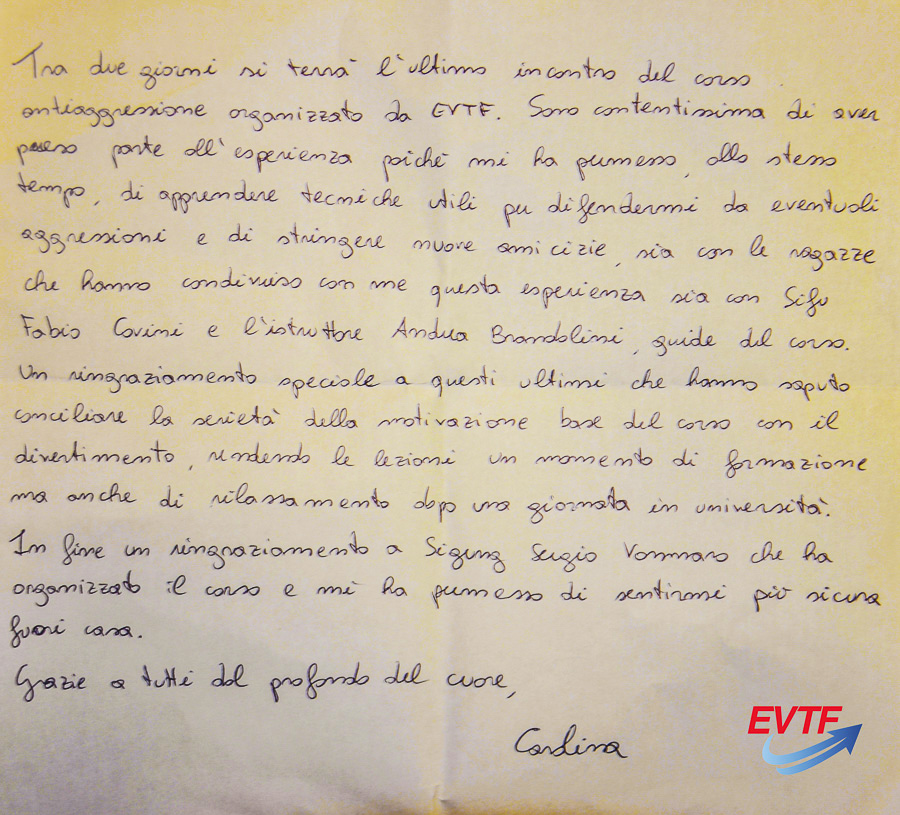 Tra due giorni si terrà l'ultimo incontro del corso
antiaggressione organizzato da EVTF. Sono contentissima di aver
preso parte all'esperienza poichè mi ha permesso, allo stesso
tempo, di apprendere tecniche utili per difendermi da eventuali
aggressioni e di stringere nuove amicizie, sia con le ragazze
che hanno condiviso con me questa esperienza sia con Sifu
Fabio Covini e l'istruttore Andrea Brandolini, guide del corso.
Un ringraziamento speciale a questi ultimi che hanno saputo
conciliare la serietà della motivazione base del corso con il
divertimento, rendendo le lezioni un momento di formazione
ma anche di rilassamento dopo una giornata in università.
In fine un ringraziamento a Sigung Sergio Vommaro che ha
organizzato il corso e mi ha permesso di sentirmi più sicura
fuori casa.
Grazie a tutti dal profondo del cuore,
Carolina
EVTF